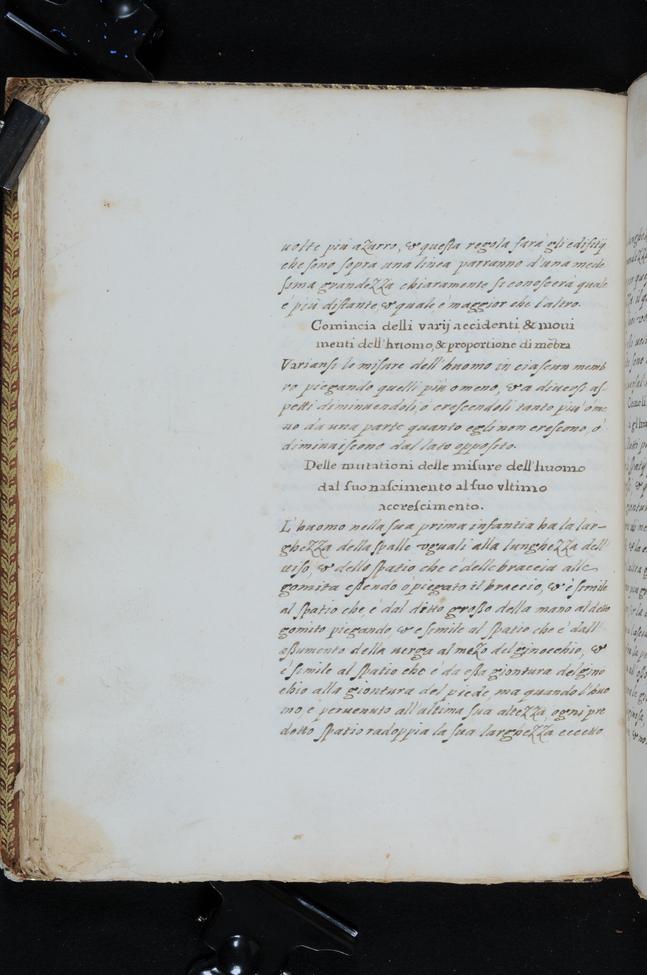 uolte piu aZurro, & questa regola fara gli edifitij
che sono sopra una linea parranno d'una mede
sima grandeZZa chiaramente si conoscerà quale
e piu distante, & quale è maggior che l'altro.
Comincia delli varij accidenti, & moui
menti dell'huomo, & proportione di mēbra
Variansi le misure dell'huomo in ciascun memb
ro piegando quelli piu o meno, & a diuersi as-
petti diminuendoli, o crescendoli tanto piu o me
no da una parte quanto egli non crescono, o
diminuiscono dal lato opposito.
Delle mutationi delle misure dell'huomo
dal suo nascimento al suo vltimo
accrescimento.
L'huomo nella sua prima infantia ha la lar-
gheZZa della spalle vguali alla lungheZZa dell
uiso, & dello spatio che è delle braccia alle
gomita essendo è piegato il braccio, & è simile
al spatio che è dal ditto grosso della mano al ditto
gomito piegando, & e simile al spatio che è dall'
della verga al meZo del ginocchio, &
è simile al spatio che è da essa giontura del gino
chio alla giontura del piede, ma quando l'huo
mo, è peruenuto all'ultima sua alteZZa, ogni pre
detto spatio radoppia la sua largheZZa eccetto